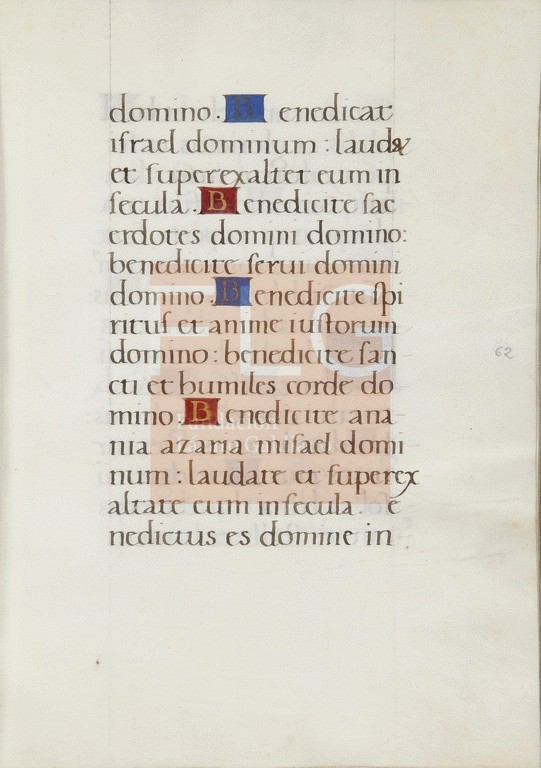 domino. B enedicat
iſrael dominum : laud&
et ſuperexaltet eum in
ſecula. B enedicite ſac
erdotes domini domino:
benedicite ſerui domini
domino. B enedicite ſpi
rituſ et anime iuſtorum
domino : benedicite ſan
cti et humiles corde do
mino. B enedicite ana
nia azaria miſael domi
num : laudate et ſuperex
altate eum in ſecula. e
nedictus es domine in
62
FLG
Fundación